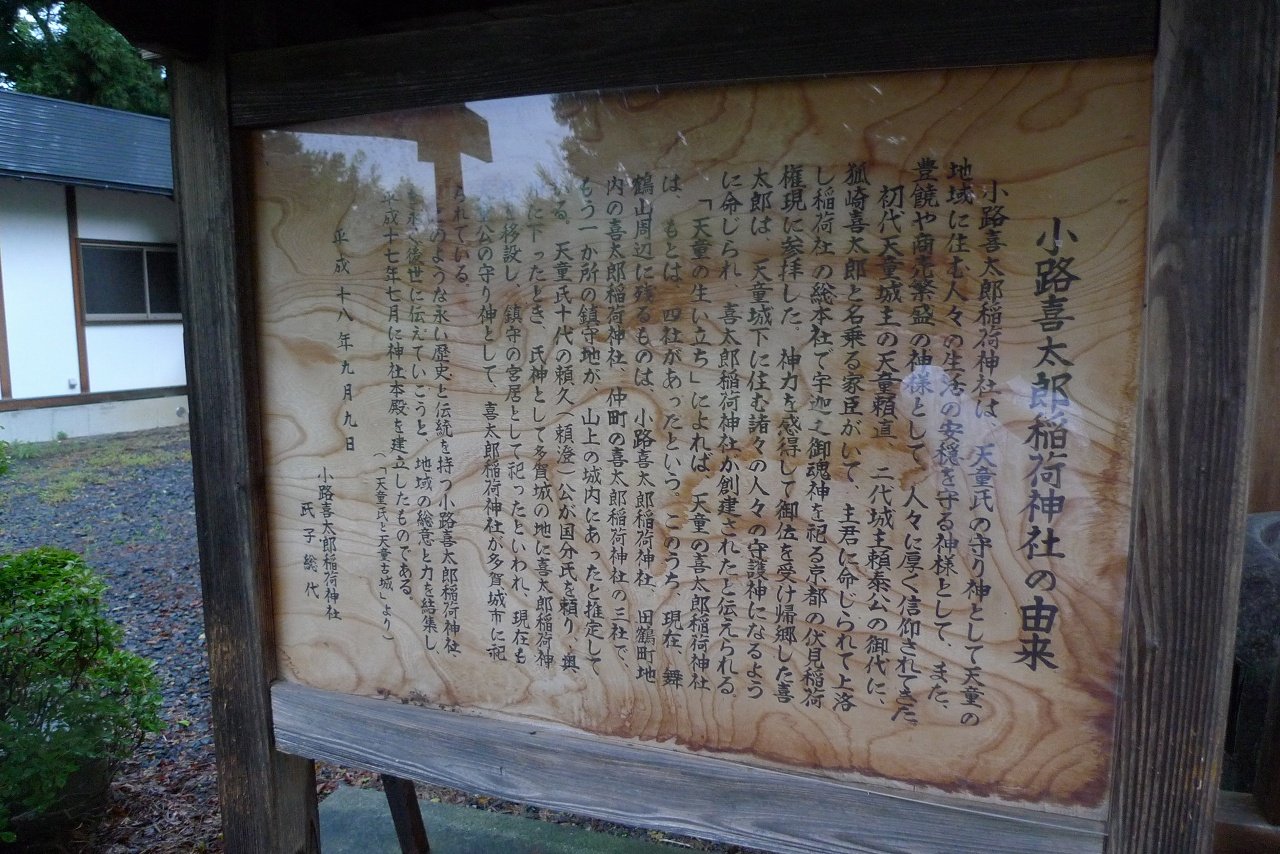 小路喜太郎稲荷神社の由来
小路喜太郎稲荷神社は、天童氏の守り神として天童の
地域に住む人々の生活の安穏を守る神様として、また、
豊饒や商売繁盛の神様として、人々に厚く信仰されてきた。
初代天童城主の天童頼直、二代城主頼泰公の御代に、
狐崎喜太郎と名乗る家臣がいて、主君に命じられて上洛
し稲荷社の総本社で宇迦之御魂神を祀る京都の伏見稲荷
権現に参拝した。神力を感得して御位を受け帰郷した喜
太郎は、天童城下に住む諸々の人々の守護神になるよう
に命じられ、喜太郎稲荷神社が創建されたと伝えられる。
「天童の生い立ち」によれば、天童の喜太郎稲荷神社
は、もとは、四社があったという。このうち、現在、舞
鶴山周辺に残るものは、小路喜太郎稲荷神社、田鶴町地
内の喜太郎稲荷神社、仲町の喜太郎稲荷神社の三社で、
もう一か所の鎮守地が、山上の城内にあったと推定して
る。天童氏十代の頼久（頼澄）公が国分氏を頼り、奥
に下ったとき、氏神として多賀城の地に喜太郎稲荷神
を移設し、鎮守の宮居として祀ったといわれ、現在も
公の守り神として、喜太郎稲荷神社が多賀城市に祀
られている。
このような永い歴史と伝統を持つ小路喜太郎稲荷神社、
を永く後世に伝えていこうと、地域の総意と力を結集し
平成十七年七月に神社本殿を建立したものである。
（「天童氏と天童古城」より）
平成十八年九月九日
小路喜太郎稲荷神社
氏子総代